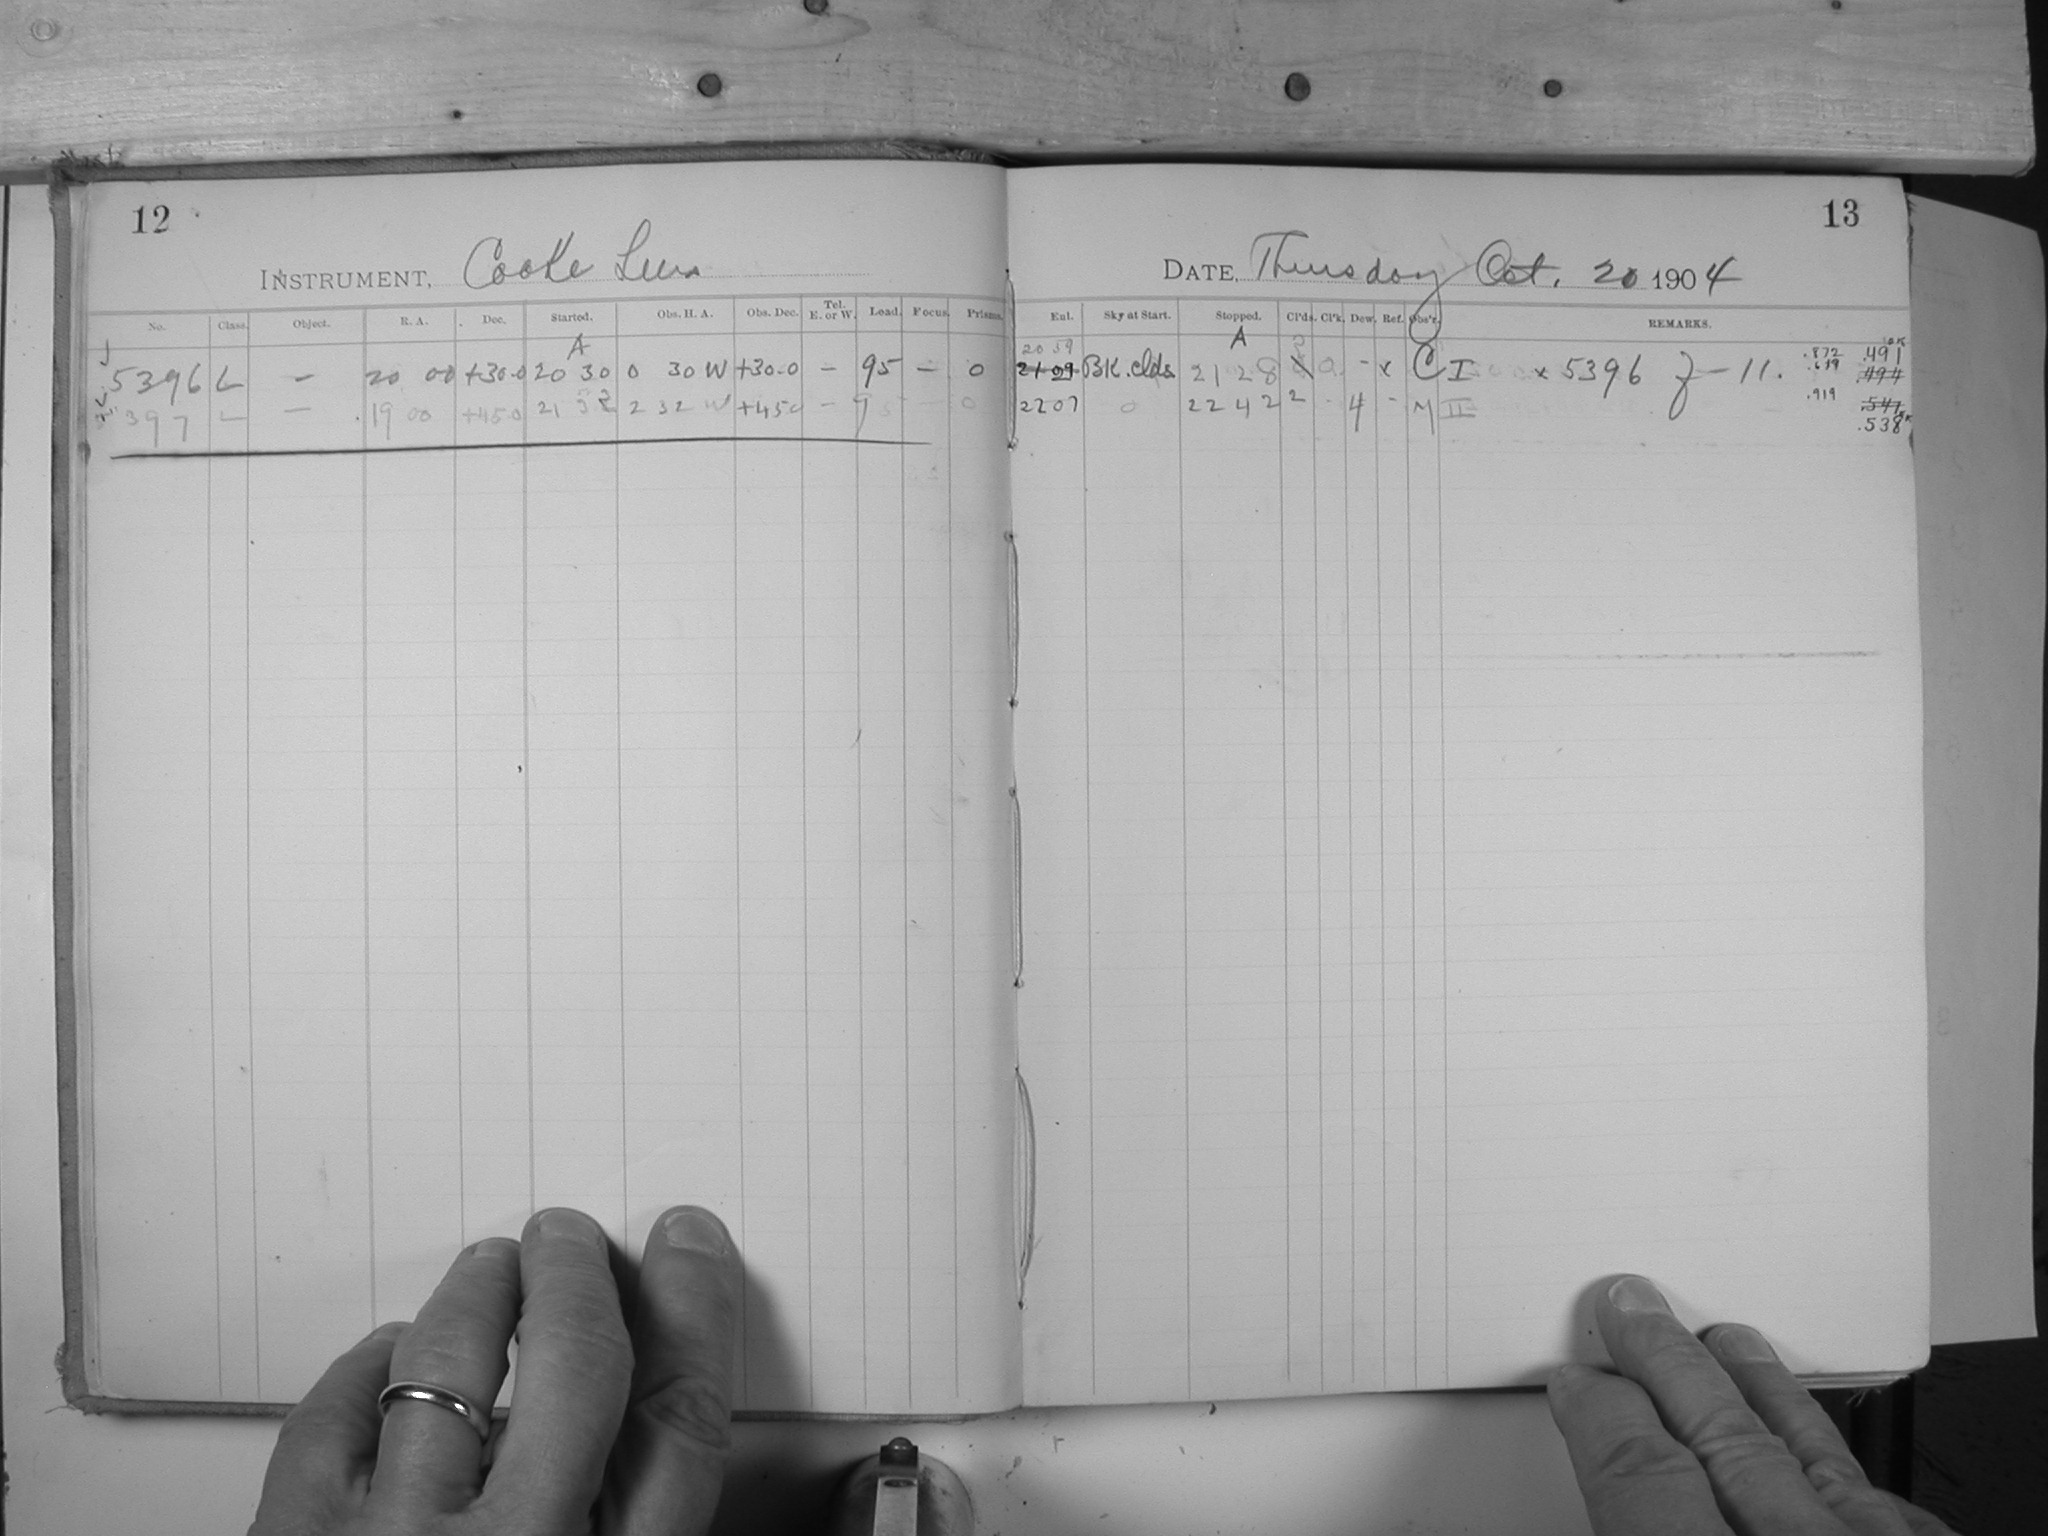 12
13
INSTRUMENT, Cooke Lens
DATE, Thursday Oct. 20 1904
No. Class. Object. R. A. Dec. Started. Obs. H. A. Obs. Dec. Tel. E. or W. Lead. Focus. Prisms. Ent. Sky at Start. Stopped. Cl'ds. Cl'k. Dew. Ref. Obs'r. REMARKS.
A A
20 59
5396 L - 20 00 +30.0 20 30 0 30 W +30.0 - 95 - 0 21 09 BK. clds 21 28 0 - x C I x 5396 z - 11. .872 .639 .491 .494
397 L - 19 00 +45.0 21 32 2 32 W +45.0 - 95 - 0 22 07 0 22 42 2 4 - M II .919 .541
.538